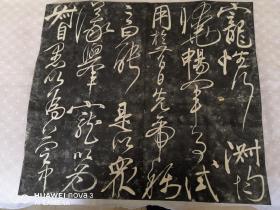 寵性行淑均
曉暢軍事試
用於昔日先帝稱
之曰能是以眾
議舉寵以為
督愚以為營中
HUAWEI nova 3